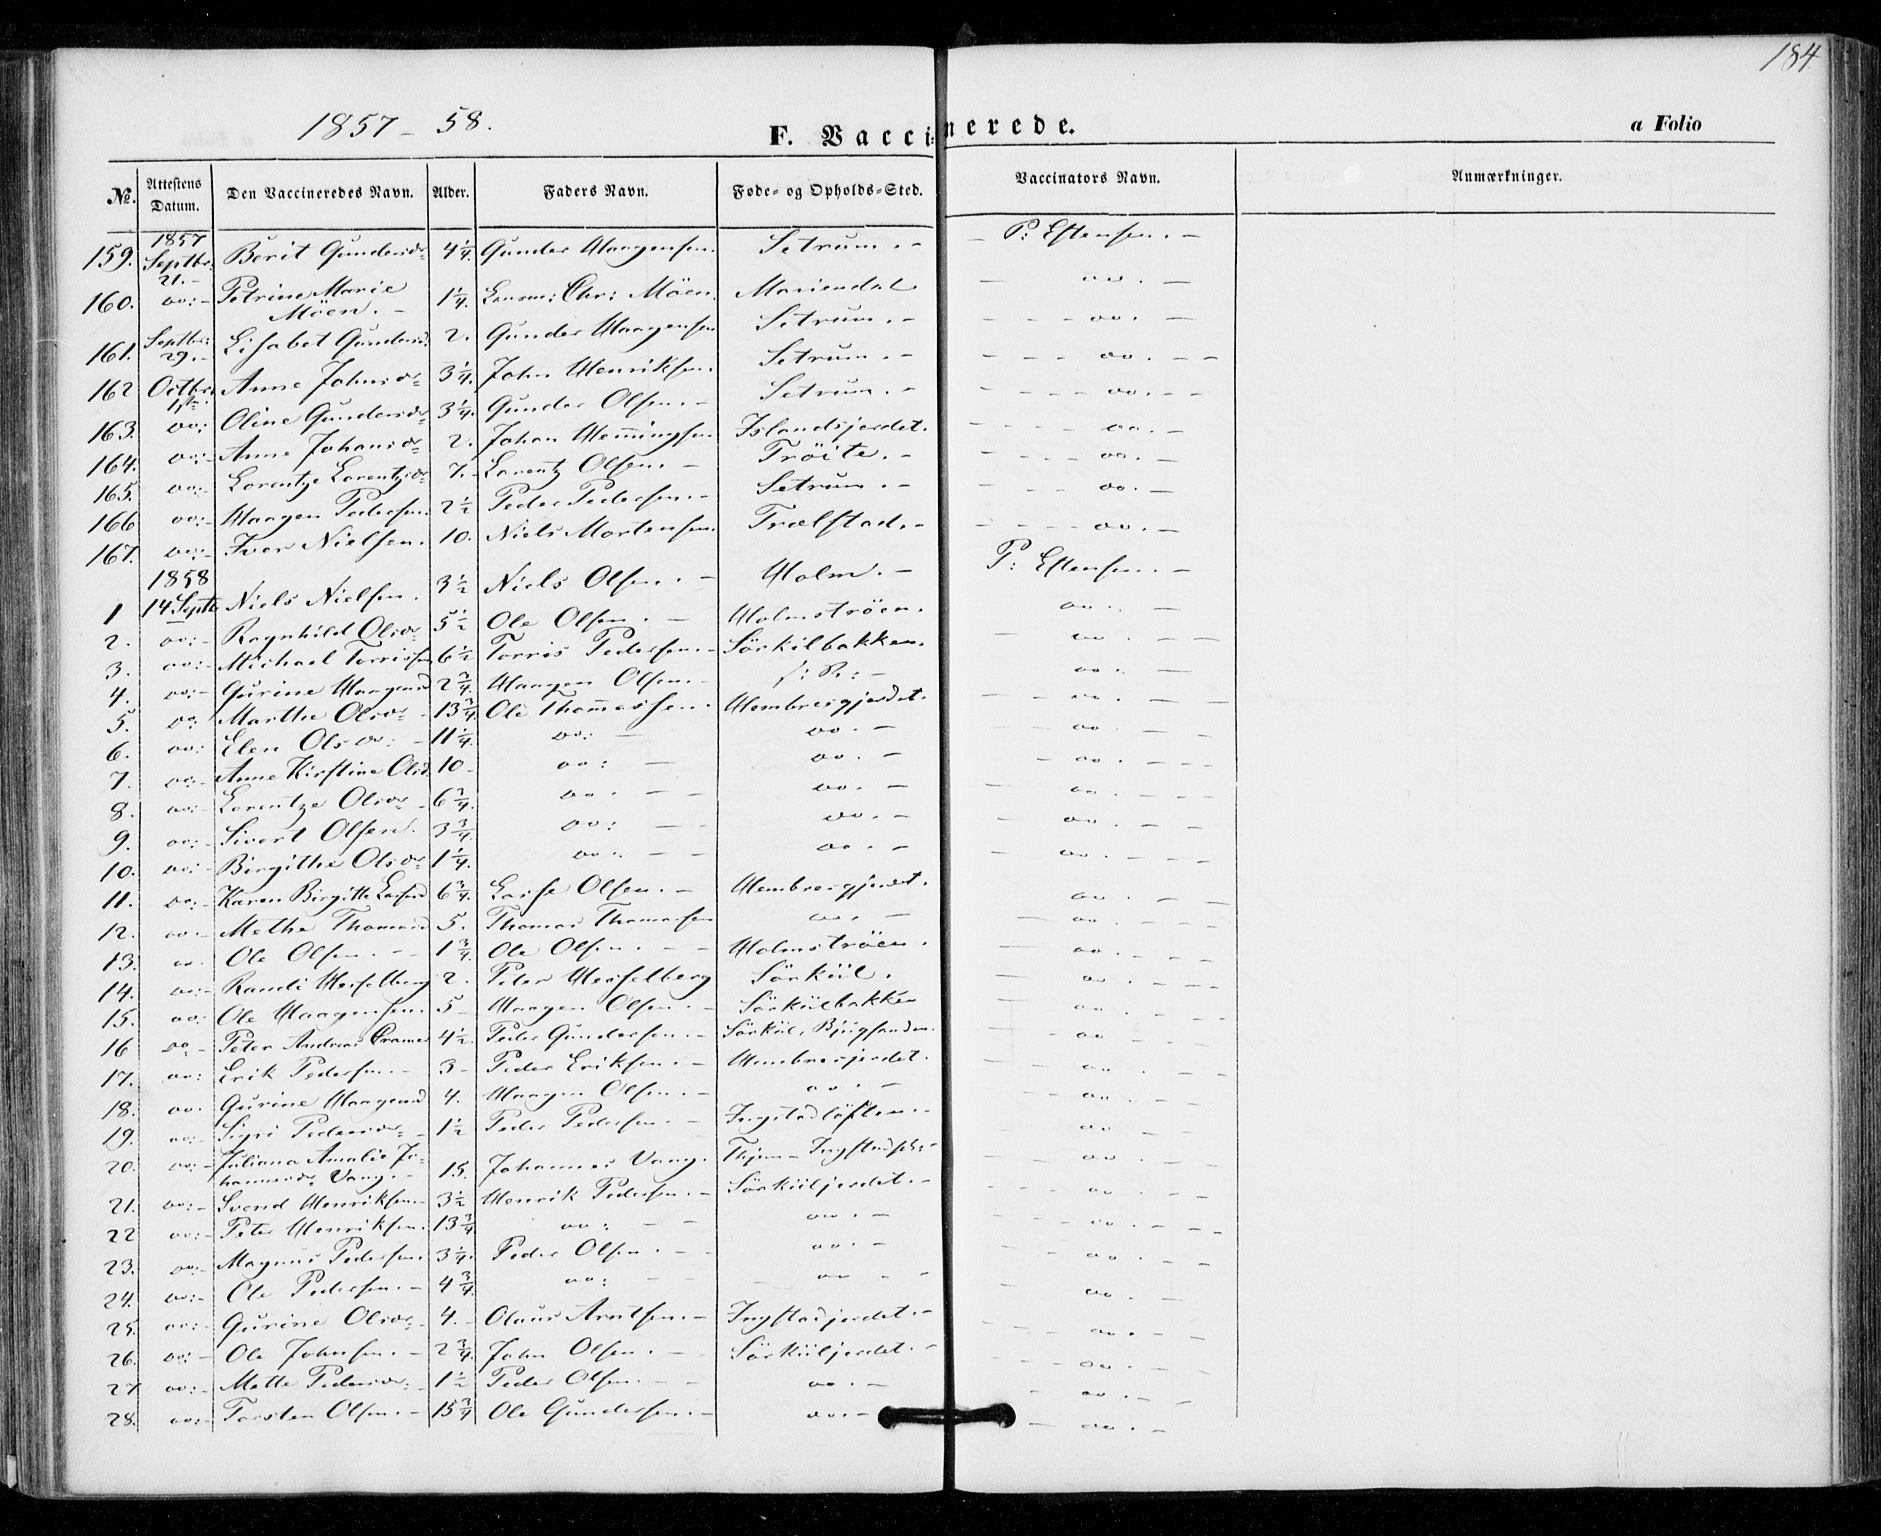 184.
1857 - 58.
F. Vaccinerede.
a Folio
No. Attestens Datum. Den Vaccineredes Navn. Alder. Faders Navn. Føde- og Opholds-Sted. Vaccinators Navn. Anmærkninger.
1857
159. Septbr. 21. - Berit Gundersdr 4 1/4 Gunder Haagensen. Setrum. - - P: Estensen. -
160. do: - Petrine Marie Möen. - 1 1/4. Chr: Möen. Mariendal - do. -
161. Septbr: 29. - Lisabet Gundersd. 2. Gunder Haagensen Setrum. - - - - do. -
162 Octbr. 1ste Anne Johnsdr 3 1/4. John Henriksen. Setrum. - - - - do. - -
163. do: Oline Gundersdr 3 1/4. Gunder Olsen. - Setrum. - - - - do. -
164. do: - Anne Johansdr 2. Johan Hemingsen Islandsjerdet. - - - do. -
165. do: - Lorentze Lorentzdr 7. - Lorentz Olsen. - Tröite. - - - - do. -
166 do: - Haagen Pedersen. 2 1/2 Peder Pedersen. - Setrum. - - - - do. -
167. do: - Iver Nielsen. 10. Niels Mortensen. Trælstad. - - - - do. -
1858
1 14. Septb Niels Nielsen. 3 1/2 Niels Olsen. - Holm. - P: Estensen. -
2. do: - Ragnhild Olsdr 5 1/2 Ole Olsen. - Holmströen. do. -
3. do: - Michael Torrissen 6 1/2 Torris Pedersen. - Sörkilbakken. - do. - -
4. do: - Gurine Haagensd 2 3/4. Haagen Olsen. - do. -
5. do Marthe Olsdr - 13 3/4. Ole Thomessen. Hembresgjerdet. - - do. - -
6. do: Elen Olsdr: - 11 1/4. do: - do. - - do. - -
7. do: - Anne Kirstine Olsd. 10 - do: - do. - - do. - - -
8. do: - Lorentze Olsdr - 6 3/4. do. - - do. - - do. - - -
9. do: - Sivert Olsen. 3 3/4. do: - - do. - - do. - -
10. do: - Birgithe Olsdr 1 1/4. do: - - do. - - do. - - -
11. do: - Karen Birgitte Larsd 6 3/4. Larse Olsen. - Hembresgjerdet. do. - -
12. do. - Methe Thomasd 5. Thomas Thomassen do. - - do. - -
13. do. Ole Olsen. - - 1 3/4. Ole Olsen. - - Holmströen. - do. - -
14. do: - Randi Hesselberg 2. Peter Hesselberg Sörkiil. - do. - - -
15. do: Ole Haagensen. 5 - Haagen Olsen. - Sörkiilbakken - do. - - -
16 do - Peter Andreas Cramer 4 1/2 Peder Gundersen. - Sörkiil, - - do - - -
17. do: Erik Pedersen. - 3 - Peder Eriksen. - Hembresjerdet. - - do. - -
18. do. Gurine Haagensd 4. Haagen Olsen. - do. - - - do. -
19. do: - Sigri Pedersdr - 1 1/2 Peder Pedersen. - - - do. - -
20. do: - Juliana Amalie Johannesdr Vang. - 15. Johannes Vang. - - do. - -
21. do: - Svend Henriksen. - 3 1/2 Henrik Pedersen. - Sörkiiljerdet. - - - do. - -
22 do: - Peter Henriksen. 13 3/4 do: - - do. - - - do. - - -
23. do: - Magnus Pedersen. 3 1/4. Peder Olsen. - - do. - - - do. - -
24. do: - Ole Pedersen. - 4 3/4 do: - - do. - - do. -
25. do: - Gurine Olsdr - 4. - Olaus Arntsen. - Ingstadjerdet. - - - - do. - -
26. do: - Ole Johnsen. - 2 3/4. John Olsen. - Sörkiiljerdet. - - - do. -
27 do: - Mette Pedersdr: 1 1/2 Peder Olsen. - - do. - - do. - -
28. do: - Torsten Olsen. - 15 3/4 Ole Gundersen. - do. - - do. -